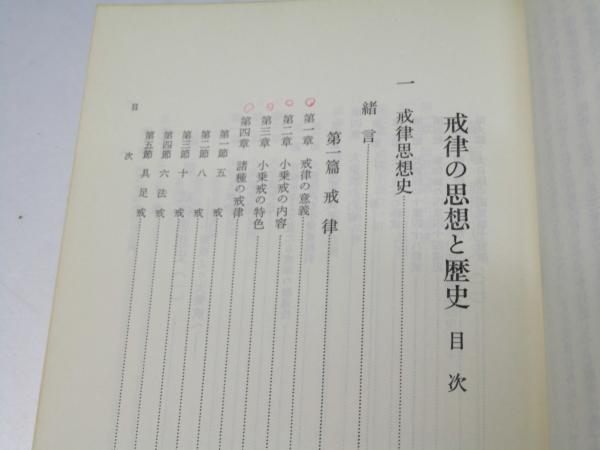 戒律の思想と歴史 目次
一 戒律思想史
緒言
第一篇 戒律
第一章 戒律の意義
第二章 小乗戒の内容
第三章 小乗戒の特色
第四章 諸種の戒律
第一節 五戒
第二節 八戒
第三節 十戒
第四節 六法戒
第五節 具足戒
目次